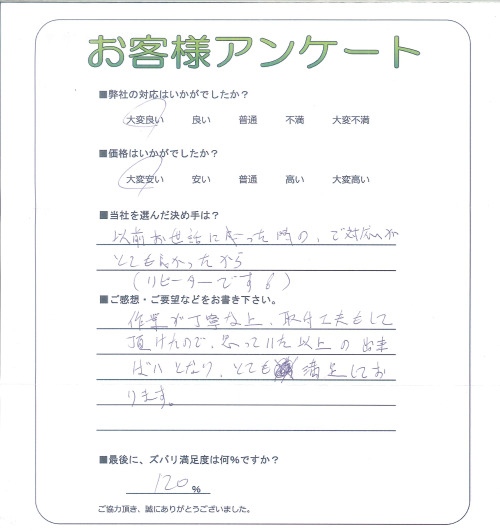 お客様アンケート
■弊社の対応はいかがでしたか？
大変良い 良い 普通 不満 大変不満
■価格はいかがでしたか？
大変安い 安い 普通 高い 大変高い
■当社を選んだ決め手は？
以前お世話になった時の、ご対応が
とても良かったから
(リピーターです
■ご感想・ご要望などをお書き下さい。
作業が丁寧な上、取付工夫もして
頂けたので、思っていた以上の出来
ばいとなり、とても満足してお
ります。
■最後に、ズバリ満足度は何％ですか？
120％
ご協力頂き、誠にありがとうございました。